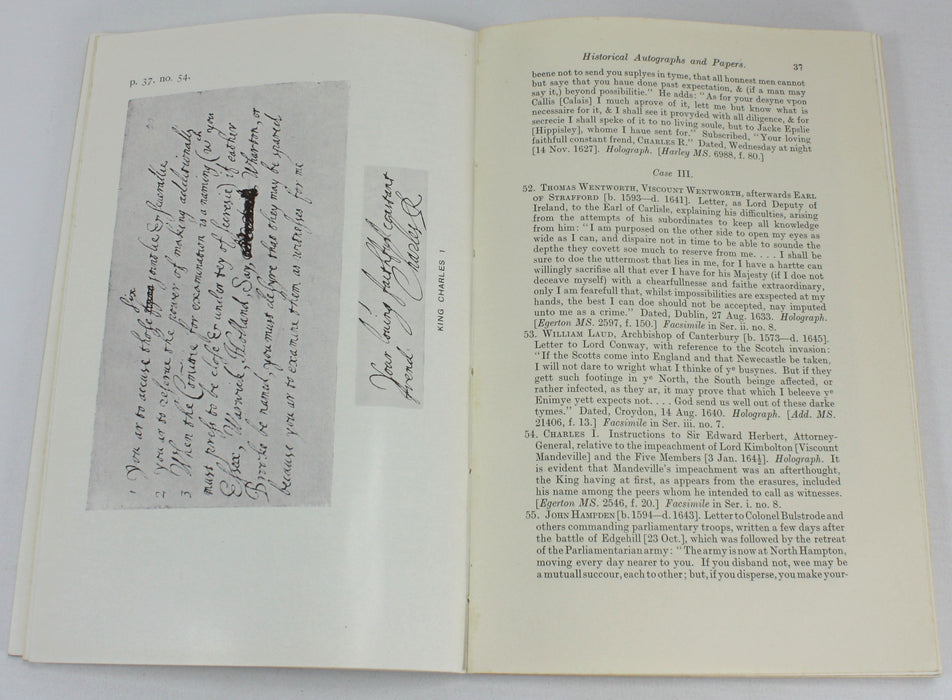 p. 37, no. 54.
1 You ar to accuse those six jointlie & severallie.
2 you ar to reserve the power of making additionally
3 When the Comitie for examination is a naming (wch you
must press to be close & under tey of secresie) if eather
Essex, Warwick, Holland, Say, Wharton, or
Brooke be named, you must desyre that they may be spared
because you ar to examine them as witnesses for me
Your loving faithfull constant
frend Charles R
KING CHARLES I
Historical Autographs and Papers. 37
beene not to send you suplyes in tyme, that all honnest men cannot
but saye that you haue done past expectation, & (if a man may
say it,) beyond possibilitie." He adds: "As for your desyne vpon
Callis [Calais] I much aprove of it, lett me but know what is
necessaire for it, & I shall see it provyded with all diligence, & for
secrecie I shall speke of it to no living soule, but to Jacke Epslie
[Hippisley], whome I haue sent for." Subscribed, "Your loving
faithfull constant frend, CHARLES R." Dated, Wednesday at night
[14 Nov. 1627]. Holograph. [Harley MS. 6988, f. 80.]
Case III.
52. THOMAS WENTWORTH, VISCOUNT WENTWORTH, afterwards EARL
OF STRAFFORD [b. 1593—d. 1641]. Letter, as Lord Deputy of
Ireland, to the Earl of Carlisle, explaining his difficulties, arising
from the attempts of his subordinates to keep all knowledge
from him: "I am purposed on the other side to open my eyes as
wide as I can, and dispaire not in time to be able to sounde the
depthe they covett soe much to reserve from me. . . . I shall be
sure to doe the uttermost that lies in me, for I have a hartte can
willingly sacrifise all that ever I have for his Majesty (if I doe not
deceave myself) with a chearfullnesse and faithe extraordinary,
only I am fearefull that, whilst impossibilities are exspected at my
hands, the best I can doe should not be accepted, nay imputed
unto me as a crime." Dated, Dublin, 27 Aug. 1633. Holograph.
[Egerton MS. 2597, f. 150.] Facsimile in Ser. ii. no. 8.
53. WILLIAM LAUD, Archbishop of Canterbury [b. 1573—d. 1645].
Letter to Lord Conway, with reference to the Scotch invasion:
"If the Scotts come into England and that Newcastle be taken,
I will not dare to wright what I thinke of ye busynes. But if they
gett such footinge in ye North, the South beinge affected, or
rather infected, as they ar, it may prove that which I beleeve ye
Enimye yett expects not. . . . God send us well out of these darke
tymes." Dated, Croydon, 14 Aug. 1640. Holograph. [Add. MS.
21406, f. 13.] Facsimile in Ser. iii. no. 7.
54. CHARLES I. Instructions to Sir Edward Herbert, Attorney-
General, relative to the impeachment of Lord Kimbolton [Viscount
Mandeville] and the Five Members [3 Jan. 164½]. Holograph. It
is evident that Mandeville's impeachment was an afterthought,
the King having at first, as appears from the erasures, included
his name among the peers whom he intended to call as witnesses.
[Egerton MS. 2546, f. 20.] Facsimile in Ser. i. no. 8.
55. JOHN HAMPDEN [b. 1594—d. 1643]. Letter to Colonel Bulstrode and
others commanding parliamentary troops, written a few days after
the battle of Edgehill [23 Oct.], which was followed by the retreat
of the Parliamentarian army: "The army is now at North Hampton,
moving every day nearer to you. If you disband not, wee may be
a mutuall succour, each to other; but, if you disperse, you make your-